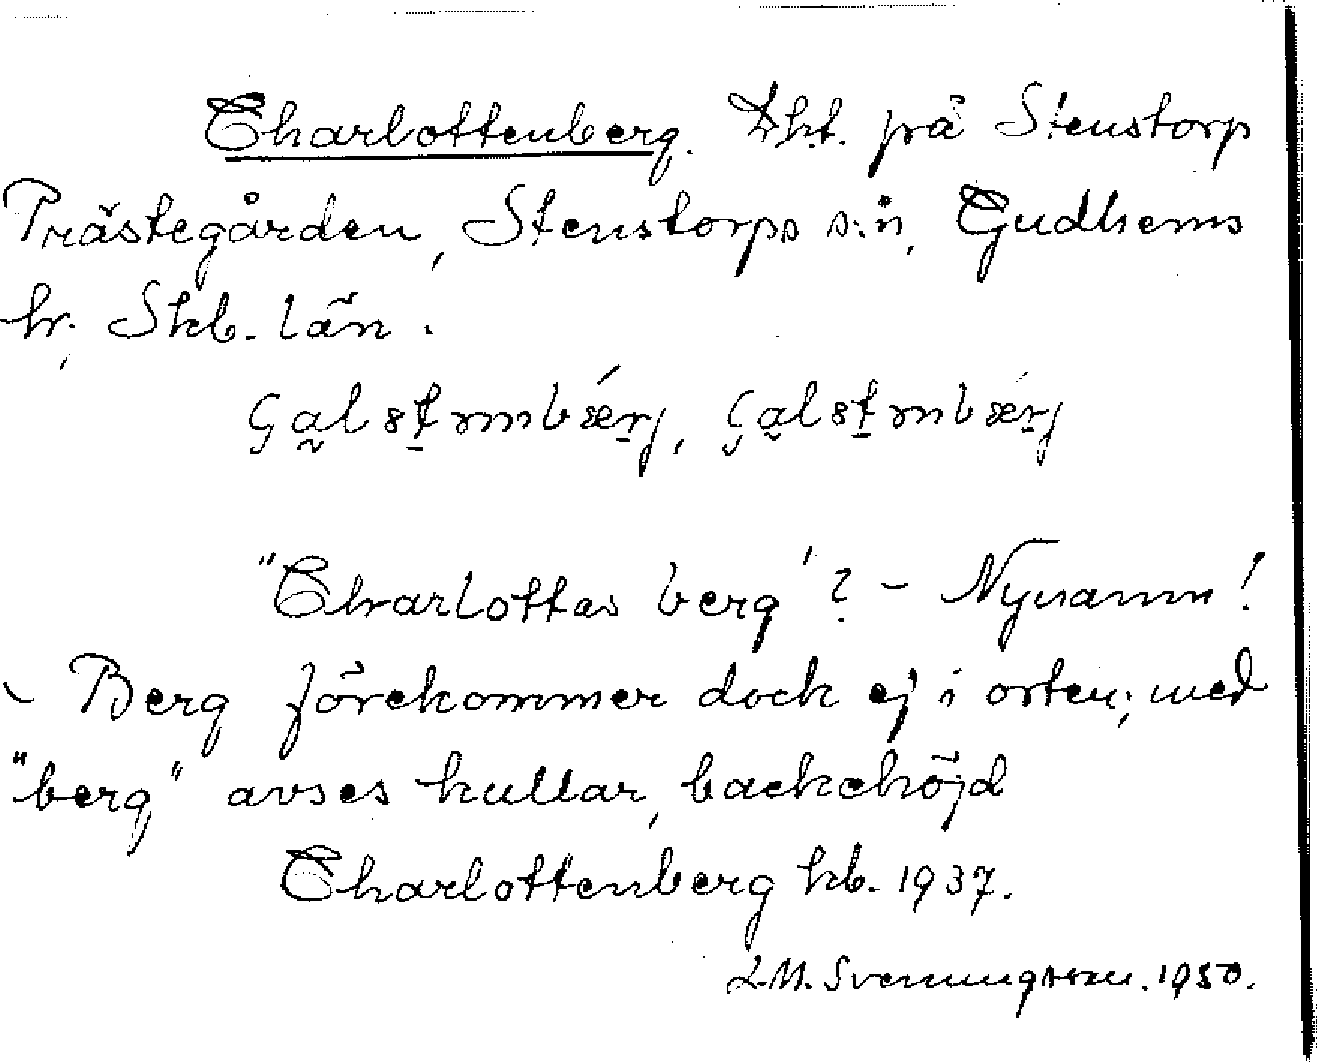 Charlottenberg. Lht. på Stenstorp
Prästegården, Stenstorps s:n, Gudhems
hr, Skb. län.
"Charlottas berg"? - Nynamn!
- Berg förekommer dock ej i orten; med
"berg" avses kullar, backehöjd
Charlottenberg kb. 1937.
L.M. Svenungsson. 1950.